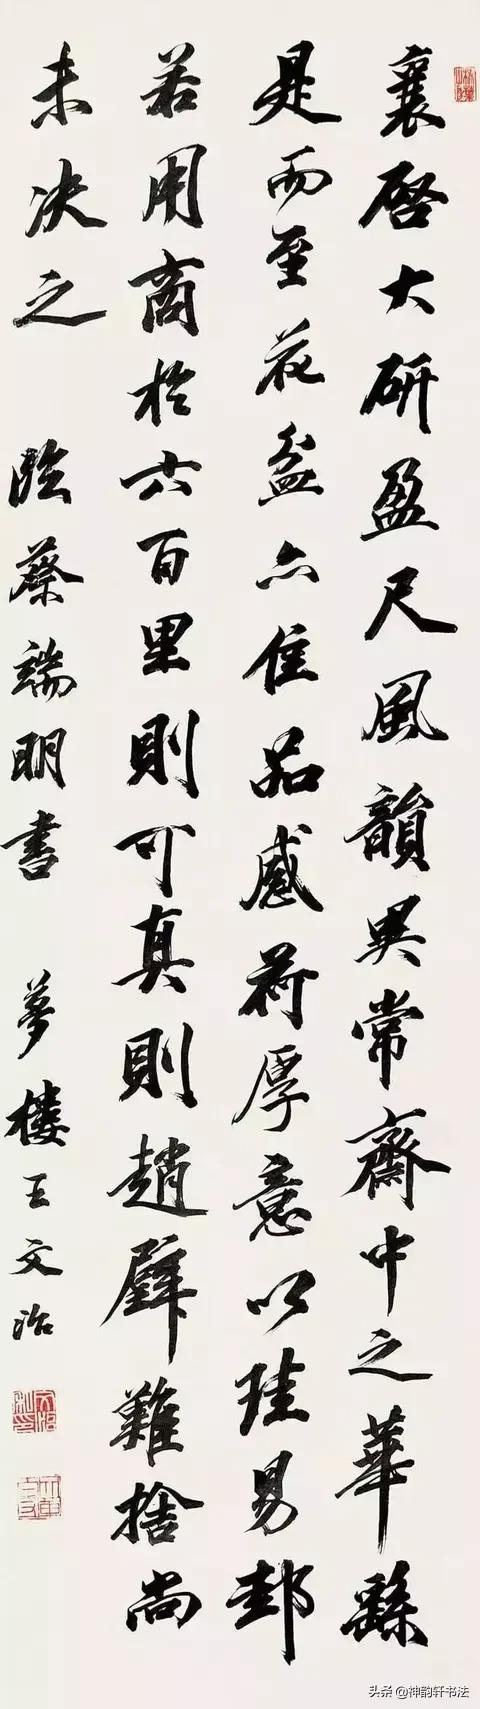 襄啓大研盈尺風韻異常齋中之華繇
是而至花盆亦佳品感荷厚意以珪易邽
若用商於六百里則可真則趙璧難捨尚
未決之
臨蔡端明書
夢樓王文治
头条@神韵轩书法